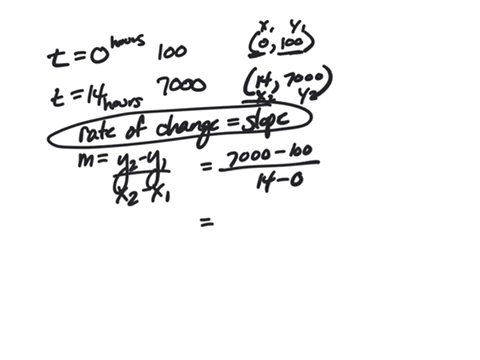 t = 0 hours 100 (0, 100) x₁ y₁
t = 14 hours 7000 (14, 7000) x₂ y₂
rate of change = slope
m = y₂ - y₁ / x₂ - x₁ = 7000 - 100 / 14 - 0
=